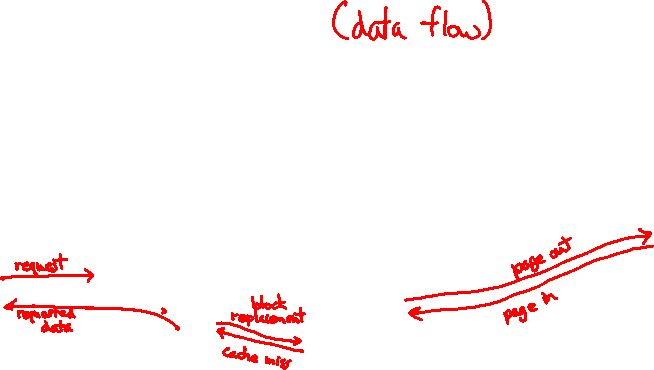 (data flow)
request
requested
data
block
replacement
cache miss
page out
page in